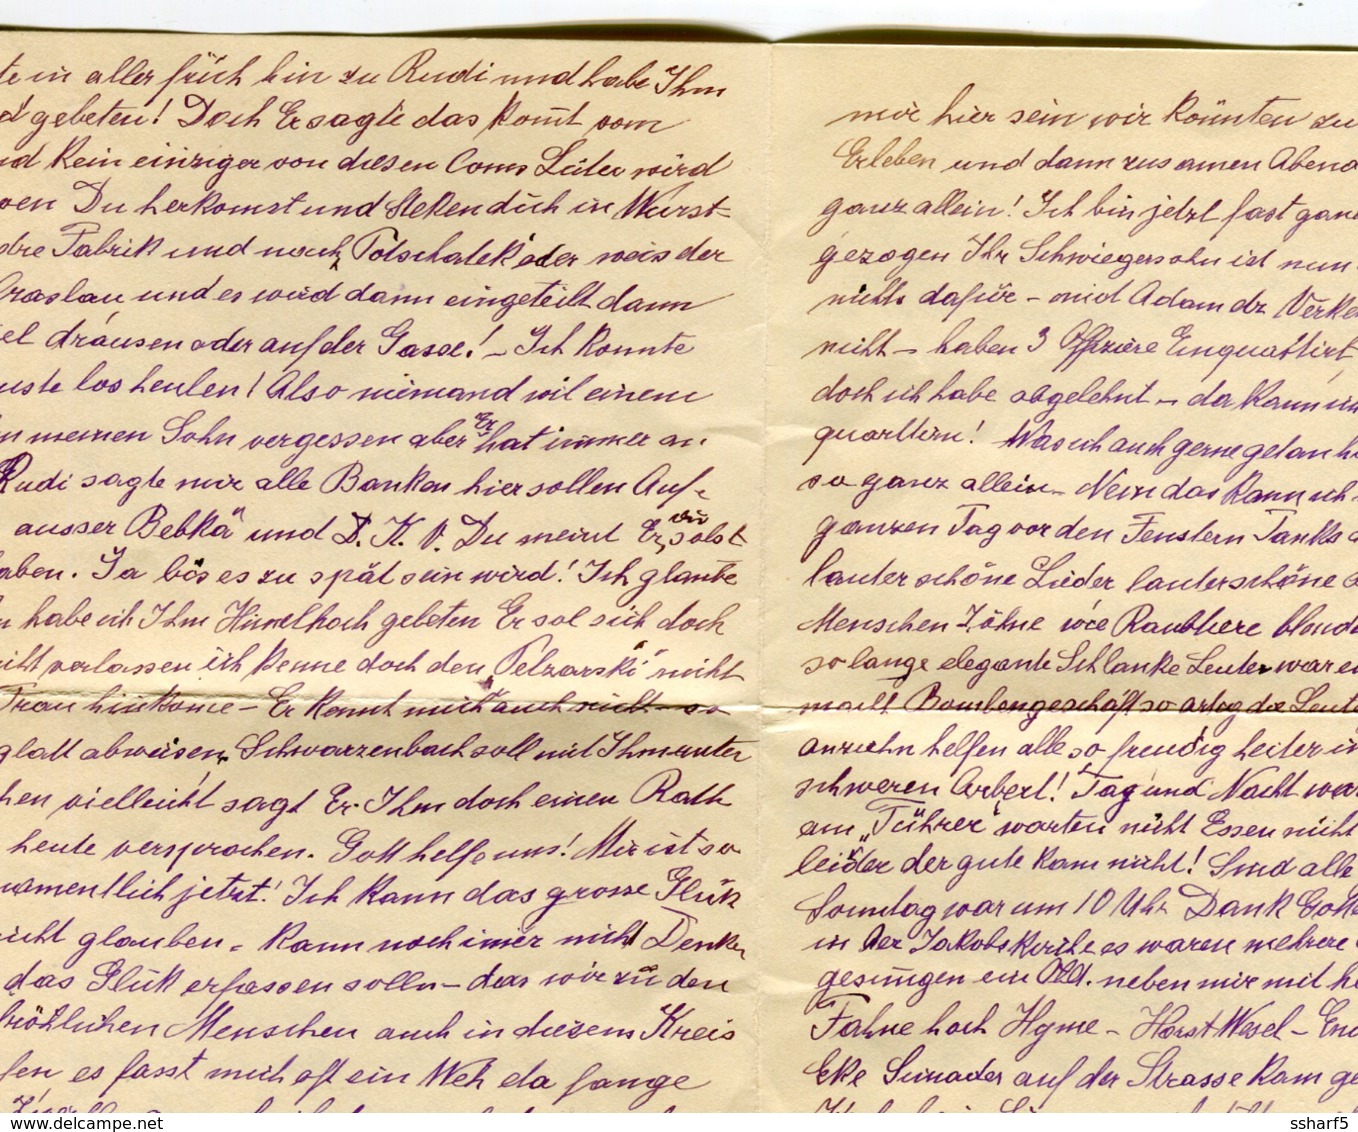 te in aller früh hin zu Rudi und habe Ihm
gebeten! Doch Er sagte das komt vom
nd kein einziger von diesen Leuten wird
Du herkomst und stellen dich in Wurst-
Fabrik und nach Potschatek oder weis der
Graslau und es wird dann eingeteilt dann
draüsen oder auf der Gasse! – Ich konnte
los heulen! Also niemand wil einem
meinen Sohn vergessen aber Er hat immer an
Rudi sagte mir alle Banken hier sollen Auf-
ausser Bebka" und D. K. V. Du meint Er, solst
aben. Ja bis es zu spät sein wird! Ich glaube
habe ich Ihm Himelhoch gebeten Er sol sich doch
nicht verlassen ich kenne doch den "Pelzarski" nicht
Frau hinkome – Er kennt mich auch nicht – so
glatt abweisen, Schwarzenbach soll mit Ihm unter
hen vielleicht sagt Er Ihm doch einen Rath
heute versprochen. Gott helfe uns! Mir ist so
namentlich jetzt! Ich kann das grosse Glük
nicht glauben – kann noch imer nicht Denken
das Glük erfassen solln – das wir zu den
fröhlichen Menschen auch in diesem Kreis
fen es fasst mich oft ein Weh da fange
mir hier sein wir könnten zu
Erleben und dann zusamen Abend
ganz allein! Ich bin jetzt fast gan
gezogen Ihr Schwiegersohn ist nun
nichts dafür – mid Adam dz Verke
nicht – haben 3 Offiziere Einquattirt
doch ich habe abgelehnt – da kann ich
quartirn! Was ich auch gerne getan h
so ganz allein – Nein das kann ich
ganzen Tag vor den Fenstern Tanks
lauter schöne Lieder lauter schöne
Menschen Zöhne wie Raubtiere blonde
so lange elegante Schlanke Leute waren
macht Bombengeschäft so artig die Leute
anziehn helfen alle so freudig heiter in
schweren Arbeit! Tag und Nacht war
am "Führer" warten nicht Essen nicht
leider der gute kam nicht! Sind alle
Sonntag war um 10 Uhr Dank Gotte
in der Jakobskirche es waren mehrere
gesungen ein Obl. neben mir mit he
Fahne hoch Hyme – Horst Wesel –
Eke Senader auf der Strasse kam ge
ssharf5